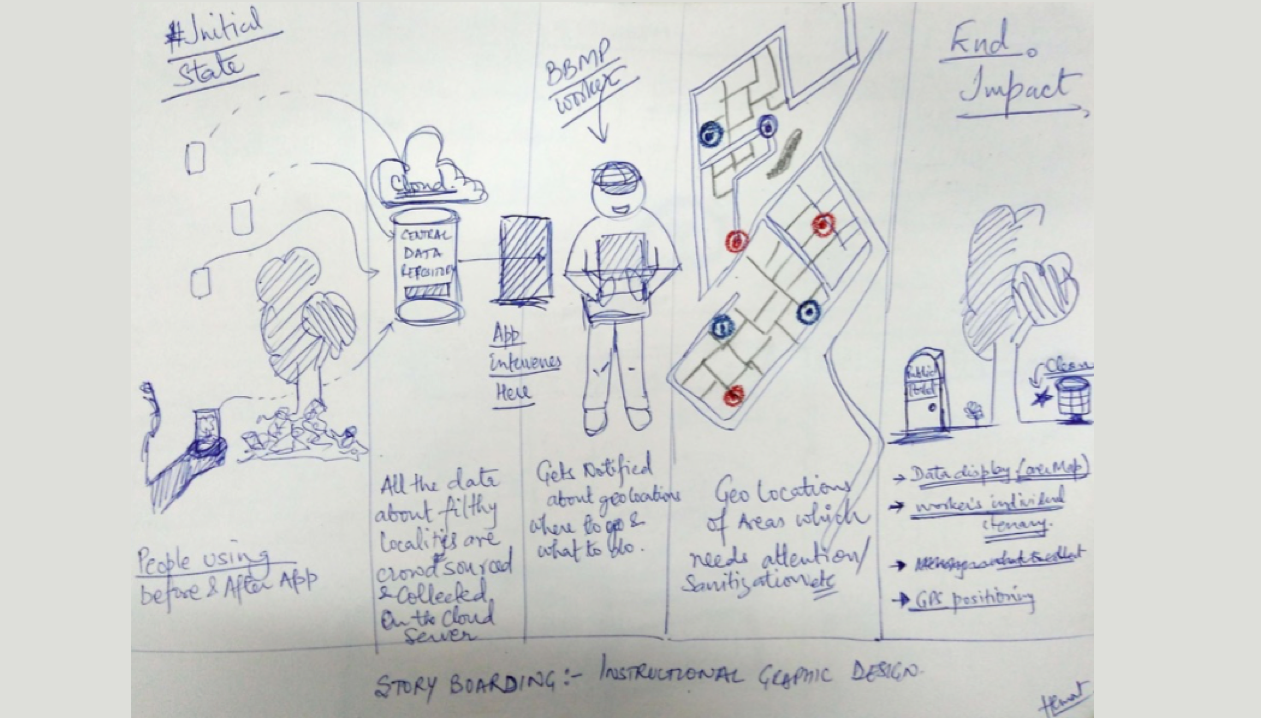 #Initial
State
People using
before & After App
Cloud
CENTRAL
DATA
REPOSITORY
All the data
about filthy
localities are
crowd sourced
& Collected
On the Cloud
Server
App
Intervenes
Here
BBMP
Worker
Gets Notified
about geolocations
where to go &
what to do.
Geo Locations
of Areas which
needs attention/
Sanitization etc
End
Impact
Public
Clean
→ Data display (over Map)
→ worker's individual
itenary.
→ what to collect
→ GPS positioning
STORY BOARDING:- INSTRUCTIONAL GRAPHIC DESIGN.